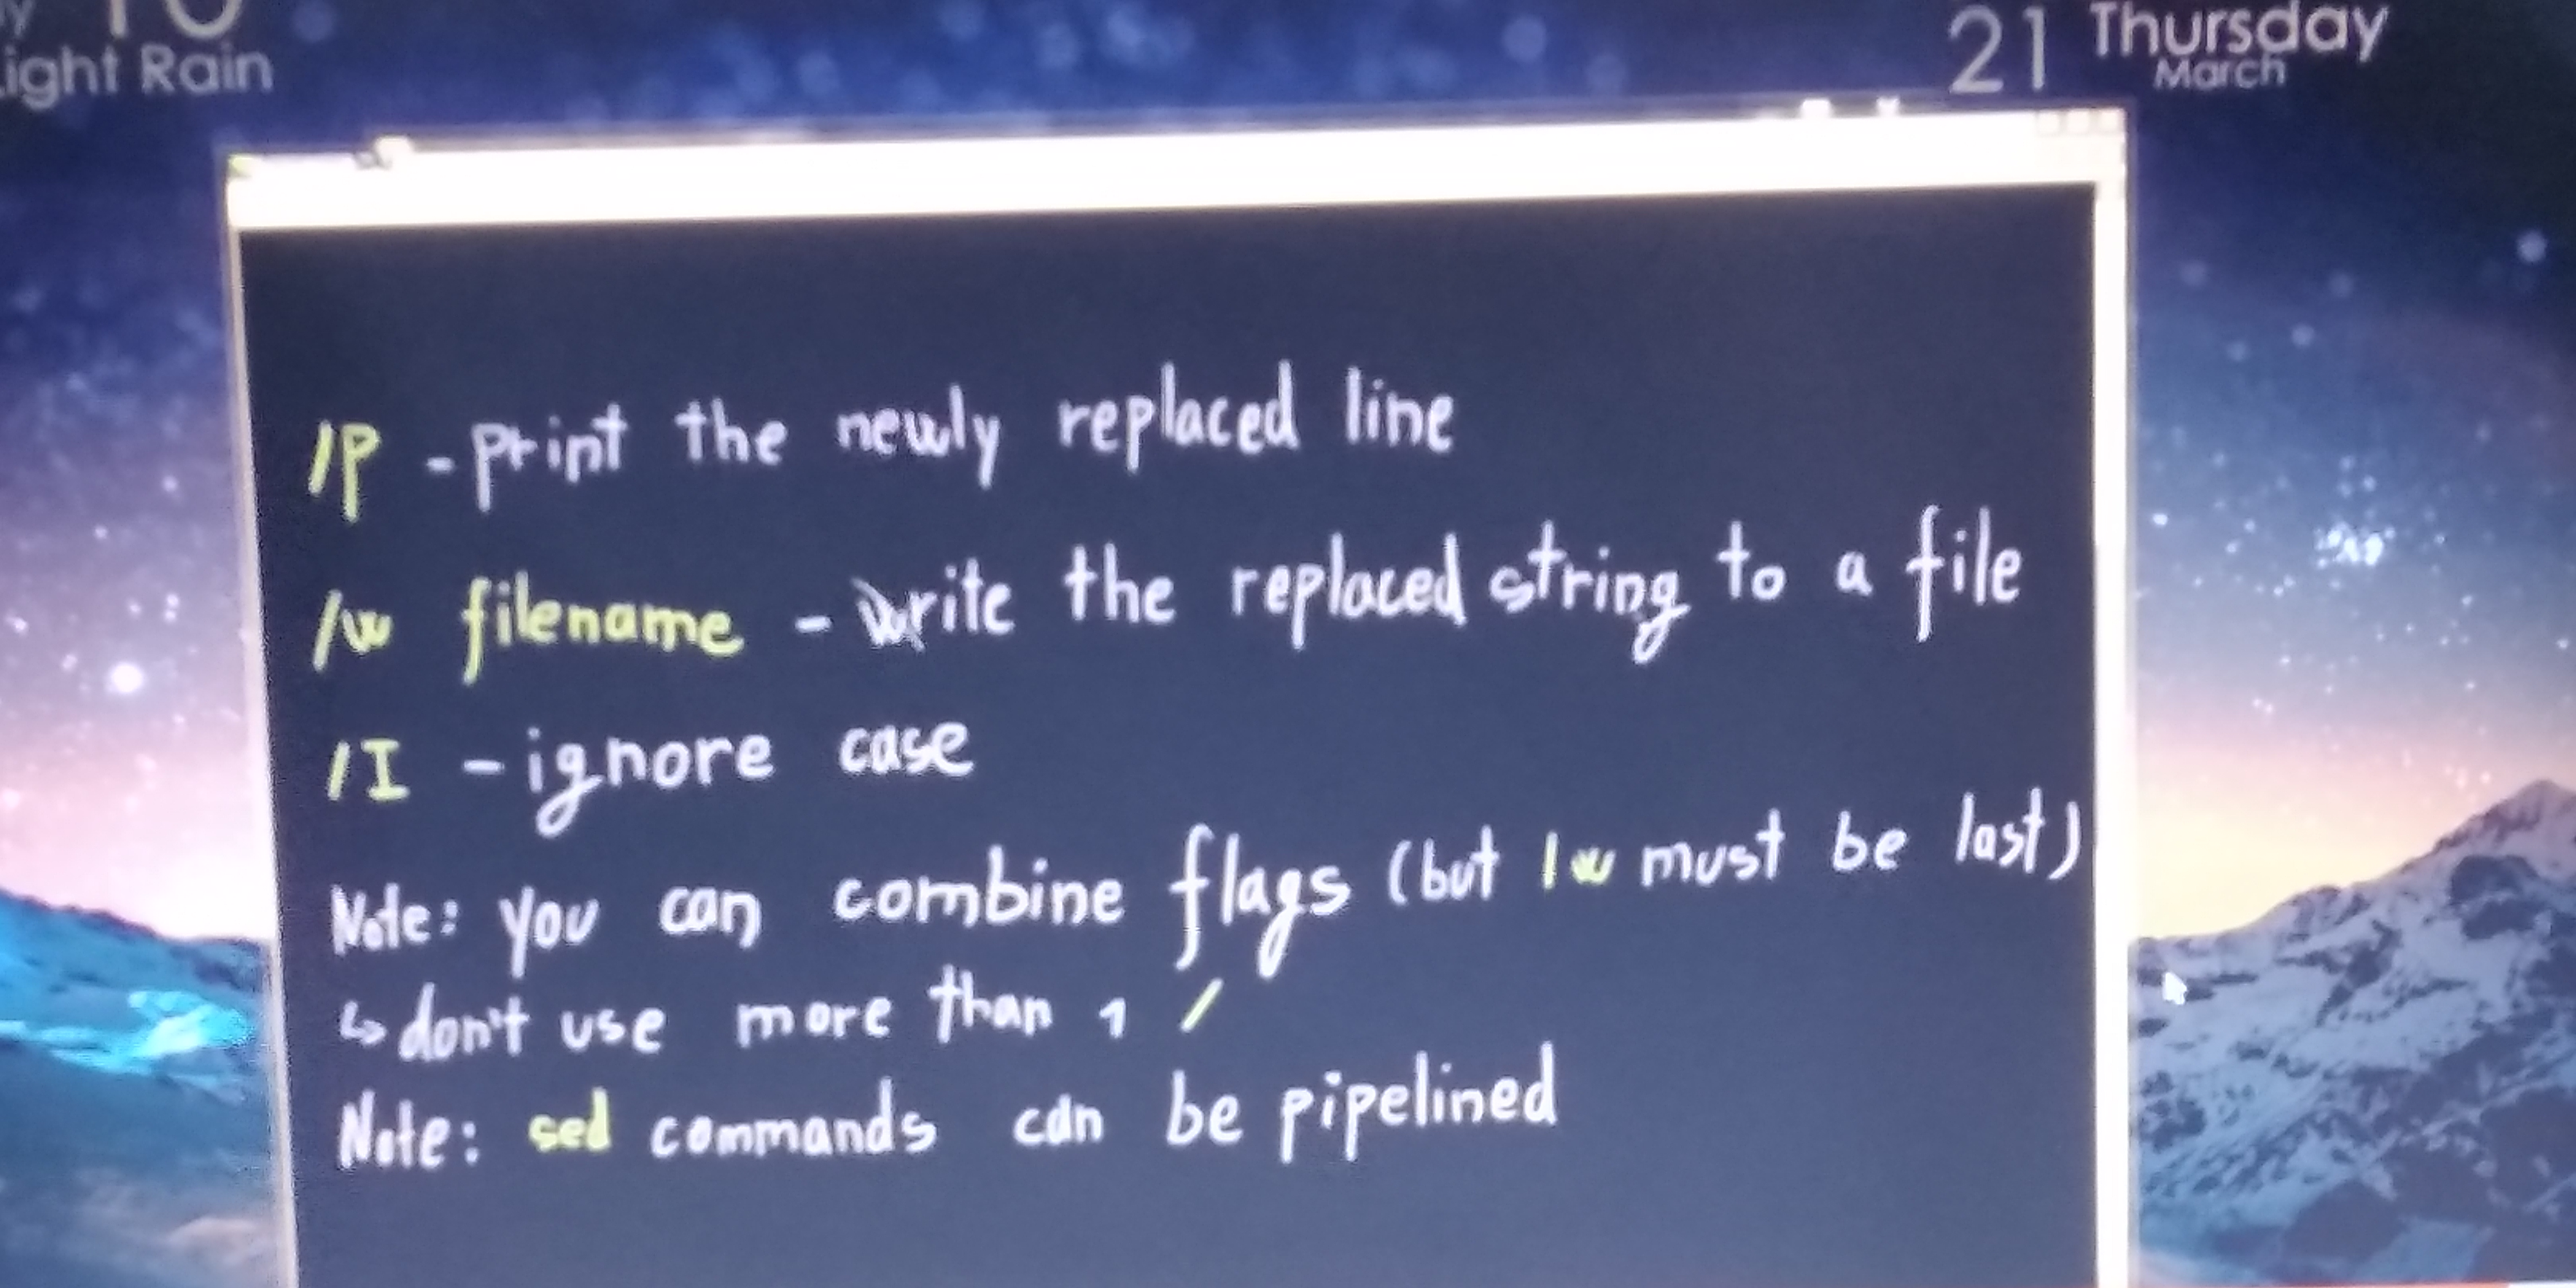 Light Rain
21 Thursday
March
/p - print the newly replaced line
/w filename - write the replaced string to a file
/I - ignore case
Note: you can combine flags (but /w must be last)
↳ don't use more than 1 /
Note: sed commands can be pipelined